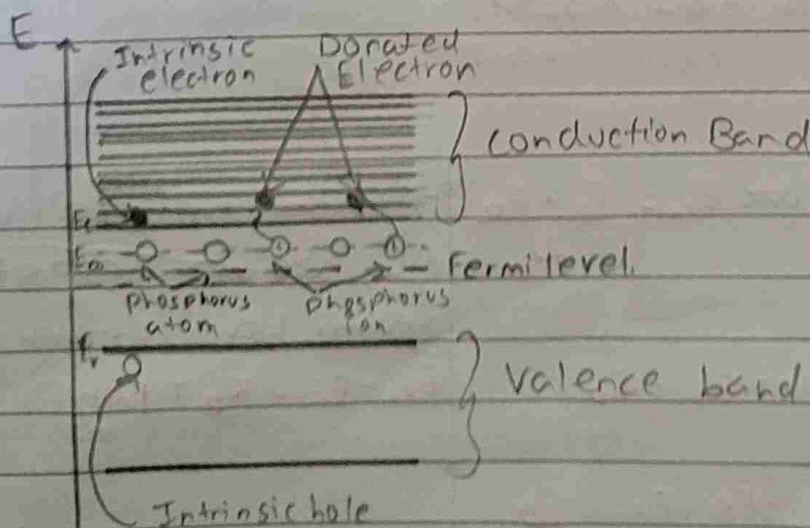 E
Intrinsic
electron
Donated
Electron
Conduction Band
Fermi level.
phosphorus
atom
phosphorus
ion
Valence band
Intrinsic hole